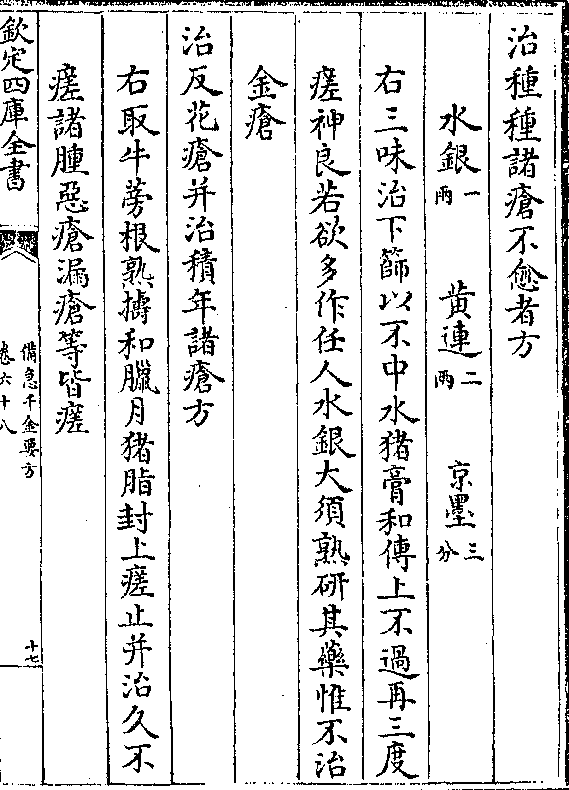 治種種諸瘡不愈者方
水銀一兩 黃連二兩 京墨三分
右三味治下篩以不中水猪膏和傅上不過再三度
瘥神良若欲多作任人水銀大須熟研其藥惟不治
金瘡
治反花瘡并治積年諸瘡方
右取牛蒡根熟擣和臘月猪脂封上瘥止并治久不
瘥諸腫惡瘡漏瘡等皆瘥
欽定四庫全書
備急千金要方
卷六十八
十七